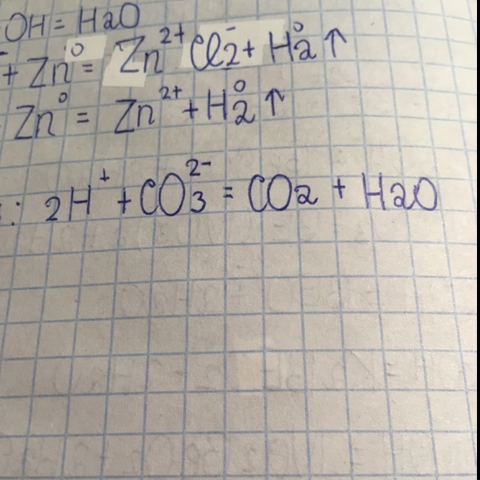 OH = H2O
+ Zn⁰ = Zn²⁺ Cl₂⁻ + H₂⁰ ↑
Zn⁰ = Zn²⁺ + H₂⁰ ↑
: 2H⁺ + CO₃²⁻ = CO2 + H2O